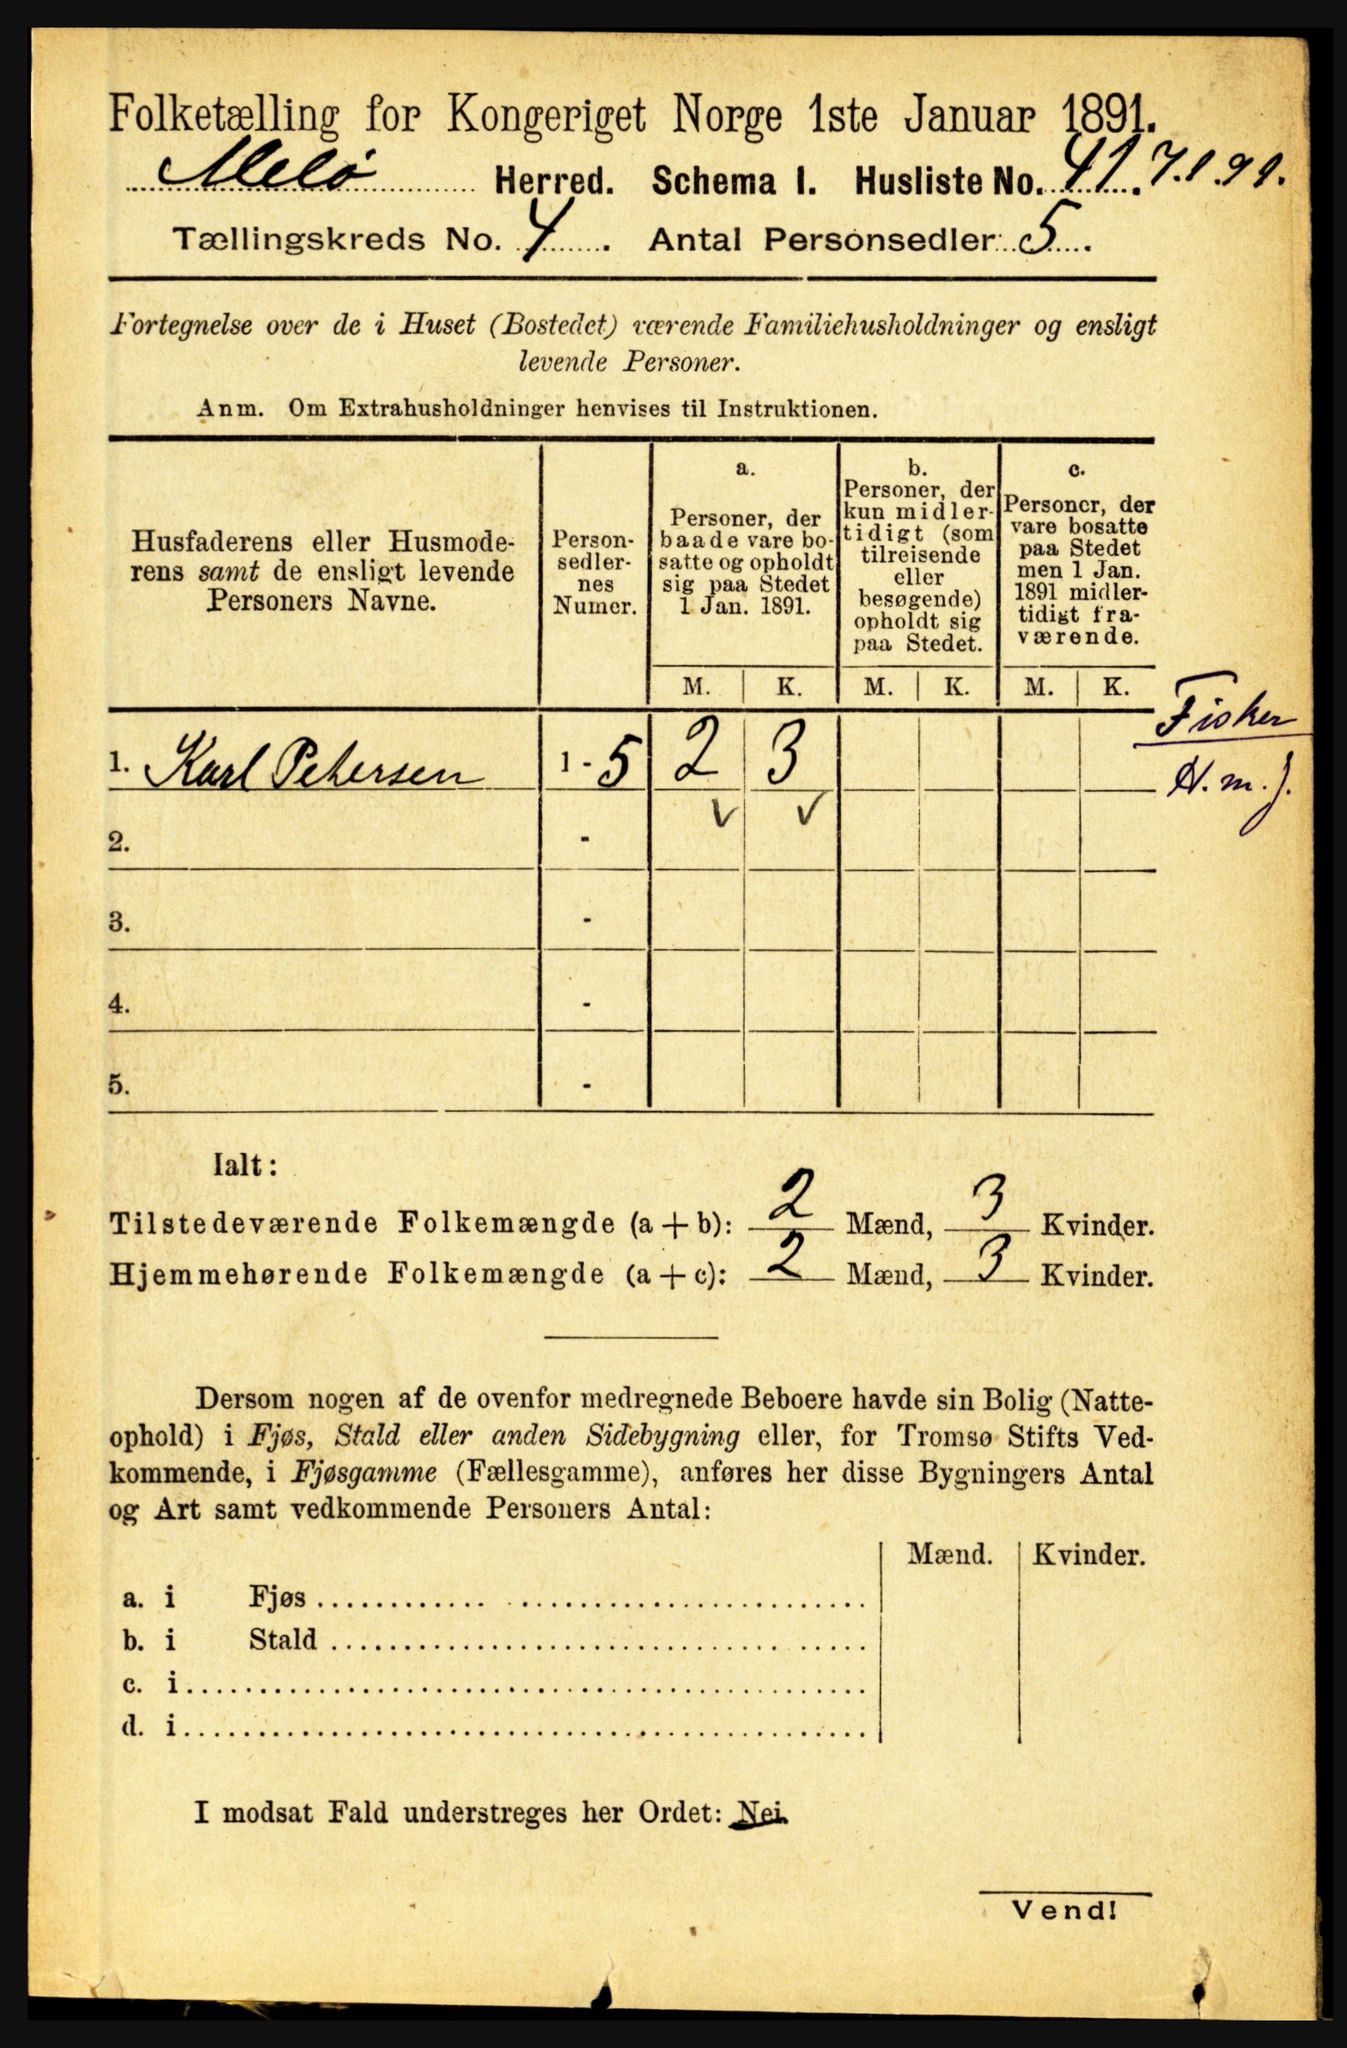 Folketælling for Kongeriget Norge 1ste Januar 1891.
Melø Herred. Schema I. Husliste No. 41. 7.1.91.
Tællingskreds No. 4. Antal Personsedler: 5.
Fortegnelse over de i Huset (Bostedet) værende Familiehusholdninger og ensligt
levende Personer.
Anm. Om Extrahusholdninger henvises til Instruktionen.
Husfaderens eller Husmode-
rens samt de ensligt levende
Personers Navne.
Person-
sedler-
nes
Numer.
a.
Personer, der
baade vare bo-
satte og opholdt
sig paa Stedet
1 Jan. 1891.
b.
Personer, der
kun midler-
tidigt (som
tilreisende
eller
besøgende)
opholdt sig
paa Stedet.
c.
Personer, der
vare bosatte
paa Stedet
men 1 Jan.
1891 midler-
tidigt fra-
værende.
M. K. M. K. M. K.
Fisker
1. Karl Petersen 1 - 5 2 3
H. m. J.
2. - v v
3. -
4. -
5. -
Ialt:
Tilstedeværende Folkemængde (a + b): 2 Mænd, 3 Kvinder.
Hjemmehørende Folkemængde (a + c): 2 Mænd, 3 Kvinder.
Dersom nogen af de ovenfor medregnede Beboere havde sin Bolig (Natte-
ophold) i Fjøs, Stald eller anden Sidebygning eller, for Tromsø Stifts Ved-
kommende, i Fjøsgamme (Fællesgamme), anføres her disse Bygningers Antal
og Art samt vedkommende Personers Antal:
Mænd. Kvinder.
a. i Fjøs
b. i Stald
c. i
d. i
I modsat Fald understreges her Ordet: Nei.
Vend!